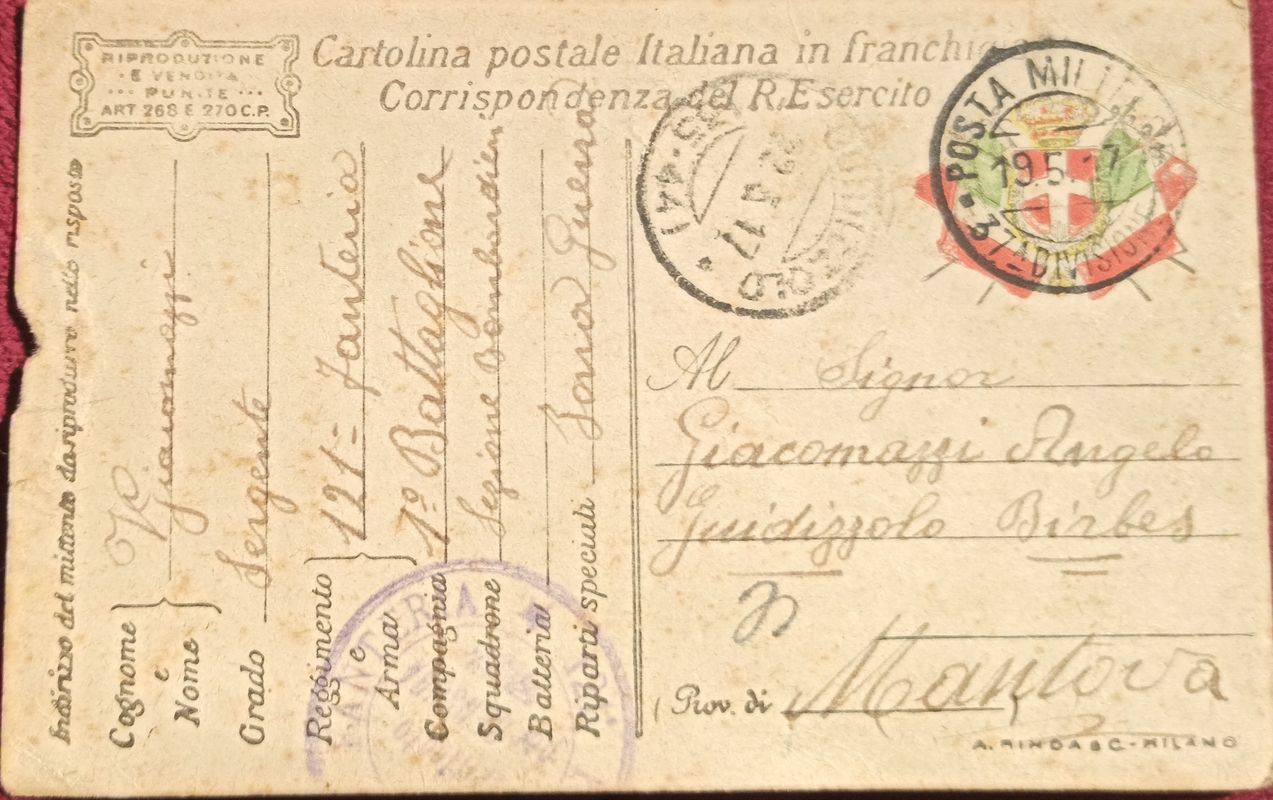 RIPRODUZIONE
E VENDITA
PUNITE
ART 268 E 270 C.P.
Cartolina postale Italiana in franchigia
Corrispondenza del R. Esercito
POSTA MILITARE
19.5.17
37ª DIVISIONE
22 5 17
Indirizzo del mittente da riprodurre nella risposta
Cognome
e
Nome
Grado Sergente
Reggimento
e
Arma
121= Fanteria
Compagnia 1º Battaglione
Squadrone Sezione Bombardieri
Batteria
Riparti speciali Zona Guerra
FANTERIA
Al Signor
Giacomazzi Angelo
Guidizzolo Birbes
Prov. di Mantova
A. RINDA & C - MILANO